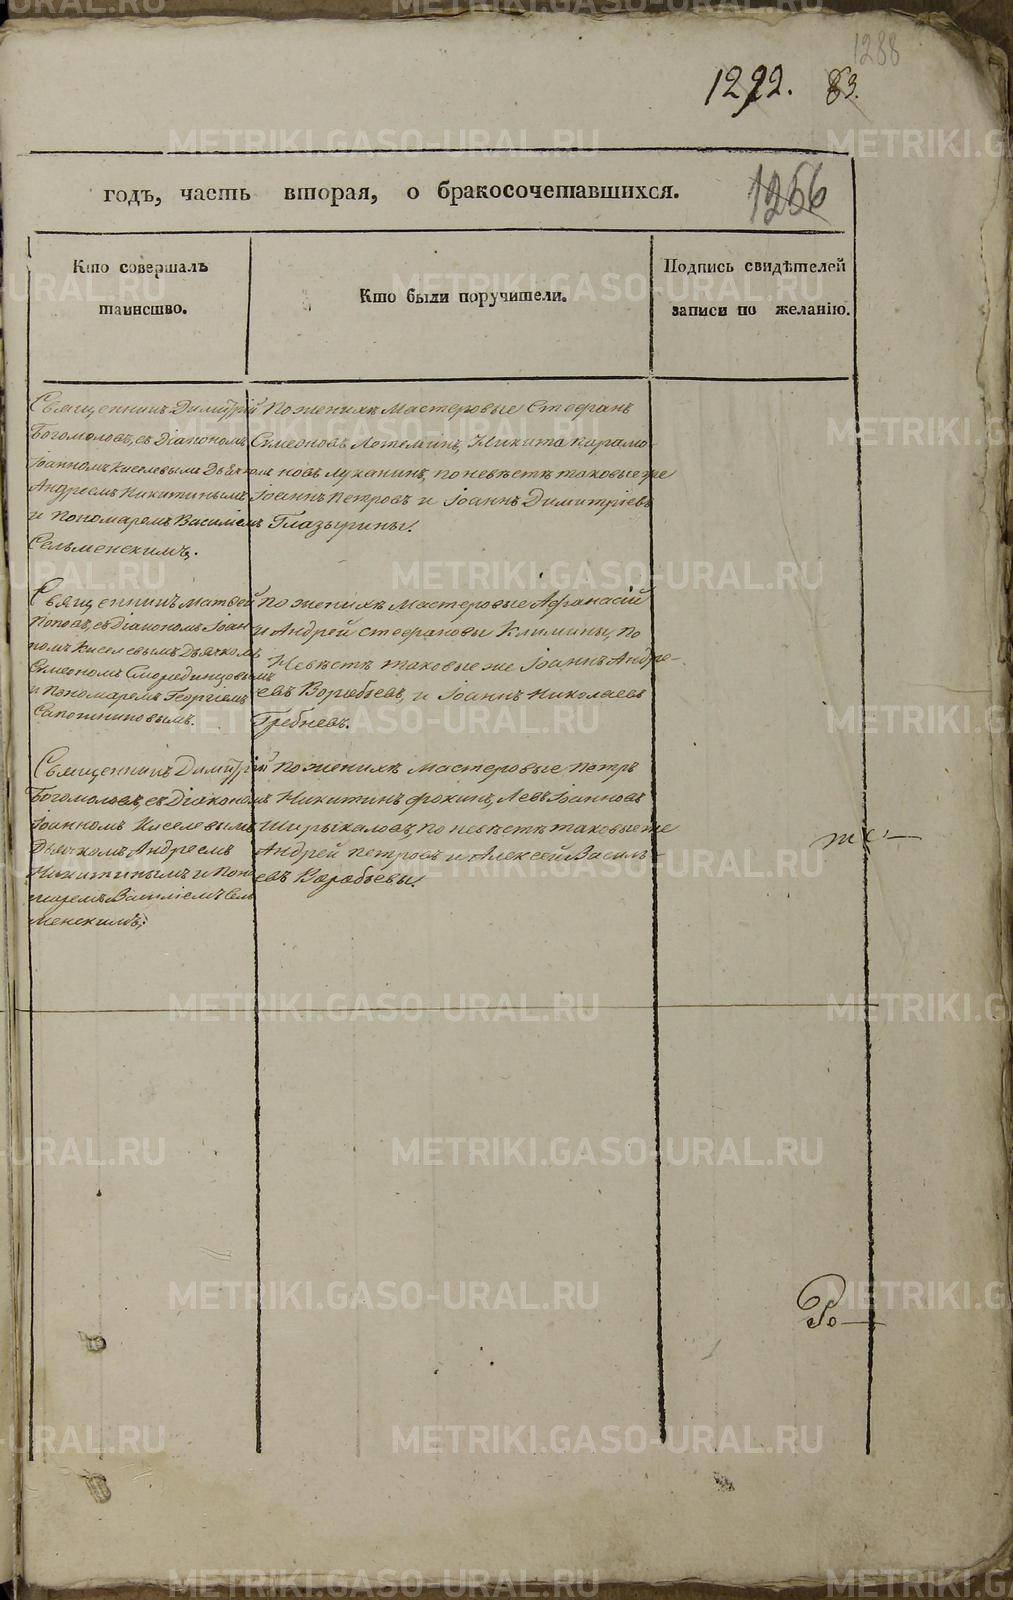 1288
1292. 83.
годъ, часть вторая, о бракосочетавшихся.
1256
Кто совершалъ
таинство.
Кто были поручители.
Подпись свидѣтелей
записи по желанію.
Священникъ Димитрій
Богомоловъ, съ діакономъ
Іоанномъ Киселевымъ Дьячкомъ
Андреемъ Никитинымъ
и Пономаремъ Василіемъ
Сельменскимъ.
По женихѣ Мастеровые Стефанъ
Симеоновъ Потемкинъ, Никита Харамо
новъ Луканинъ, по невѣстѣ таковые же
Іоаннъ Петровъ и Іоаннъ Димитріевъ
Глазырины.
Священникъ Матвей
Поповъ, съ діакономъ Іоан
номъ Киселевымъ Дьячкомъ
Симеономъ Смородинцовымъ
и Пономаремъ Георгіемъ
Сапожниковымъ.
По женихѣ Мастеровые Афанасій
и Андрей Стефановы Климины, по
Невѣстѣ таковые же Іоаннъ Андре-
евъ Воробьевъ, и Іоаннъ Николаевъ
Гребневъ.
Священникъ Димитрій
Богомоловъ, съ Діакономъ
Іоанномъ Киселевымъ
Дьячкомъ Андреемъ
Никитинымъ и Поно
маремъ Василіемъ Сель
менскимъ.
По женихѣ Мастеровые Петръ
Никитинъ Фокинъ, Левъ Іоанновъ
Ширыкаловъ, по невѣстѣ таковые же
Андрей Петровъ и Алексей Василь
евъ Воробьевы.